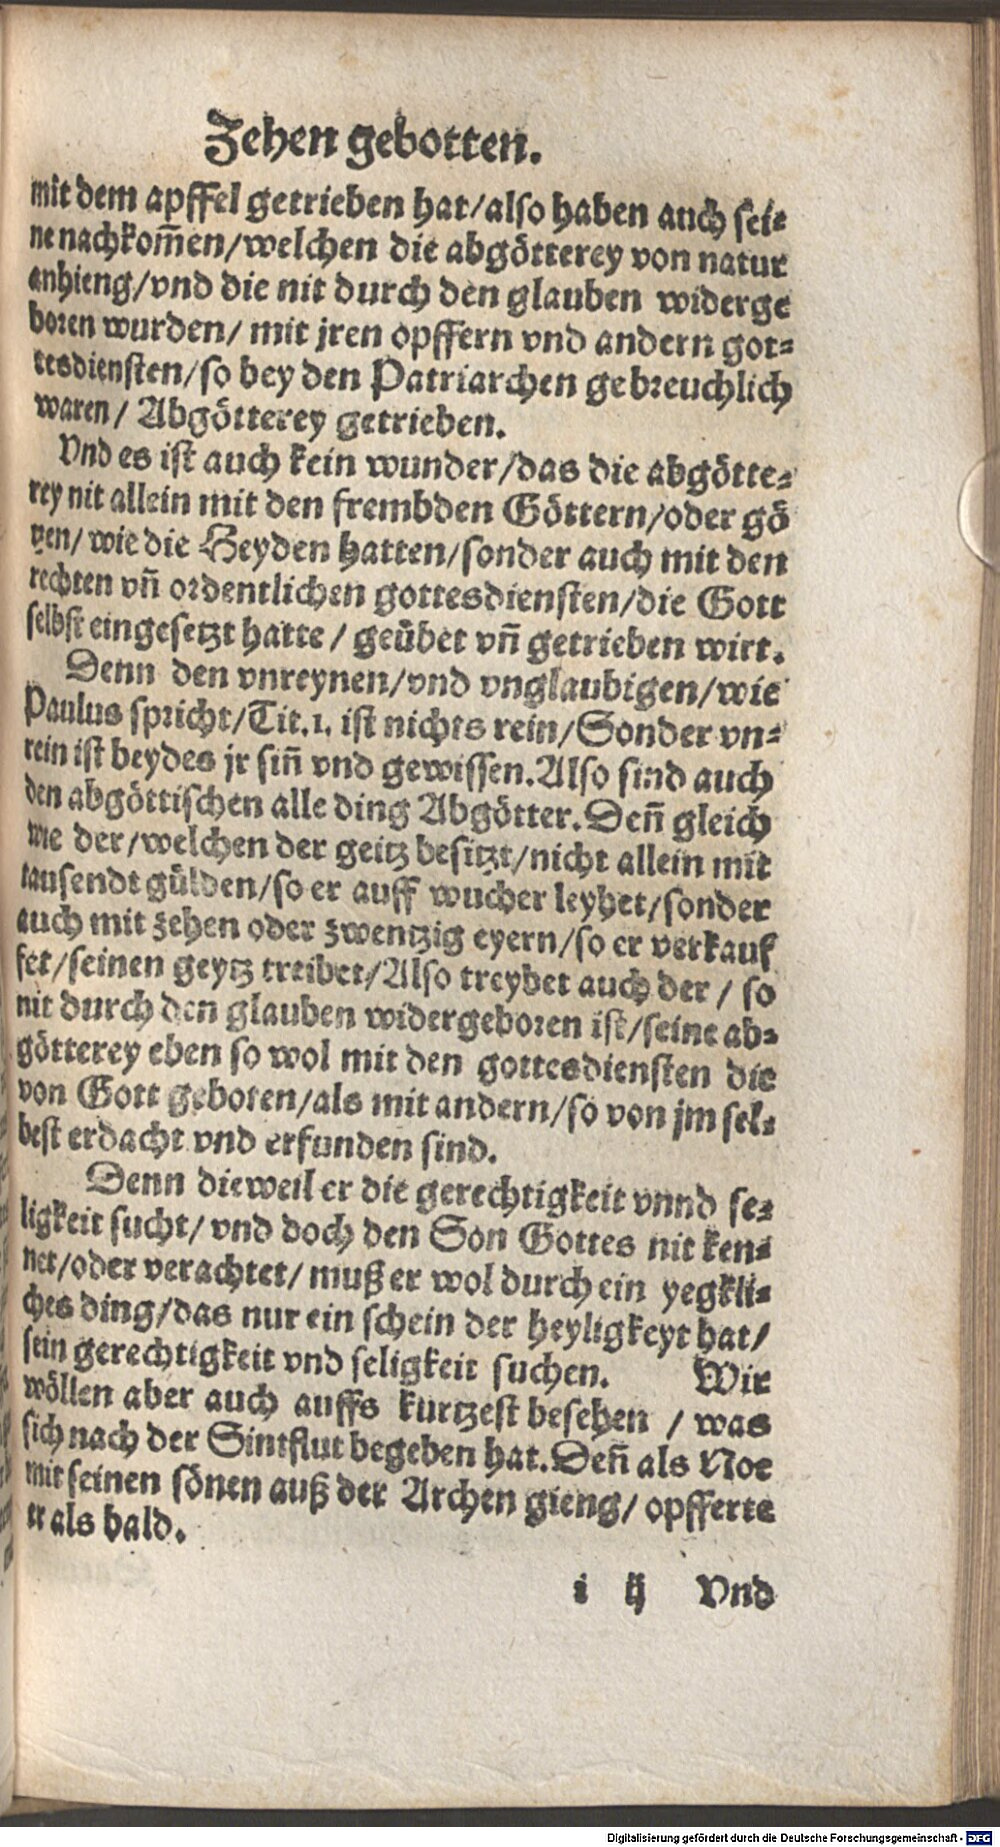 Zehen gebotten.
mit dem apffel getrieben hat/also haben auch sei⸗
ne nachkom̄en/welchen die abgötterey von natur
anhieng/vnd die nit durch den glauben widerge
boren wurden/ mit jren opffern vnd andern got⸗
tesdiensten/so bey den Patriarchen gebreuchlich
waren/ Abgötterey getrieben.
Vnd es ist auch kein wunder/das die abgötte⸗
rey nit allein mit den frembden Göttern/oder gö
tzen/ wie die Heyden hatten/sonder auch mit den
rechten vn̄ ordentlichen gottesdiensten/die Gott
selbst eingesetzt hatte/ geübet vn̄ getrieben wirt.
Denn den vnreynen/vnd vnglaubigen/wie
Paulus spricht/Tit.1. ist nichts rein/Sonder vn⸗
rein ist beydes jr sin̄ vnd gewissen.Also sind auch
den abgöttischen alle ding Abgötter.Den̄ gleich
wie der/welchen der geitz besitzt/nicht allein mit
tausendt gülden/so er auff wucher leyhet/sonder
auch mit zehen oder zwentzig eyern/so er verkauf
fet/seinen geytz treibet/Also treybet auch der/ so
nit durch den glauben widergeboren ist/seine ab⸗
götterey eben so wol mit den gottesdiensten die
von Gott geboten/als mit andern/so von jm sel⸗
best erdacht vnd erfunden sind.
Denn dieweil er die gerechtigkeit vnnd se⸗
ligkeit sucht/ vnd doch den Son Gottes nit ken⸗
net/oder verachtet/ muß er wol durch ein yegkli⸗
ches ding/das nur ein schein der heyligkeyt hat/
sein gerechtigkeit vnd seligkeit suchen. Wir
wöllen aber auch auffs kurtzest besehen / was
sich nach der Sintflut begeben hat.Den̄ als Noe
mit seinen sönen auß der Archen gieng/ opfferte
er als bald.
i ij Vnd
Digitalisierung gefördert durch die Deutsche Forschungsgemeinschaft - DFG